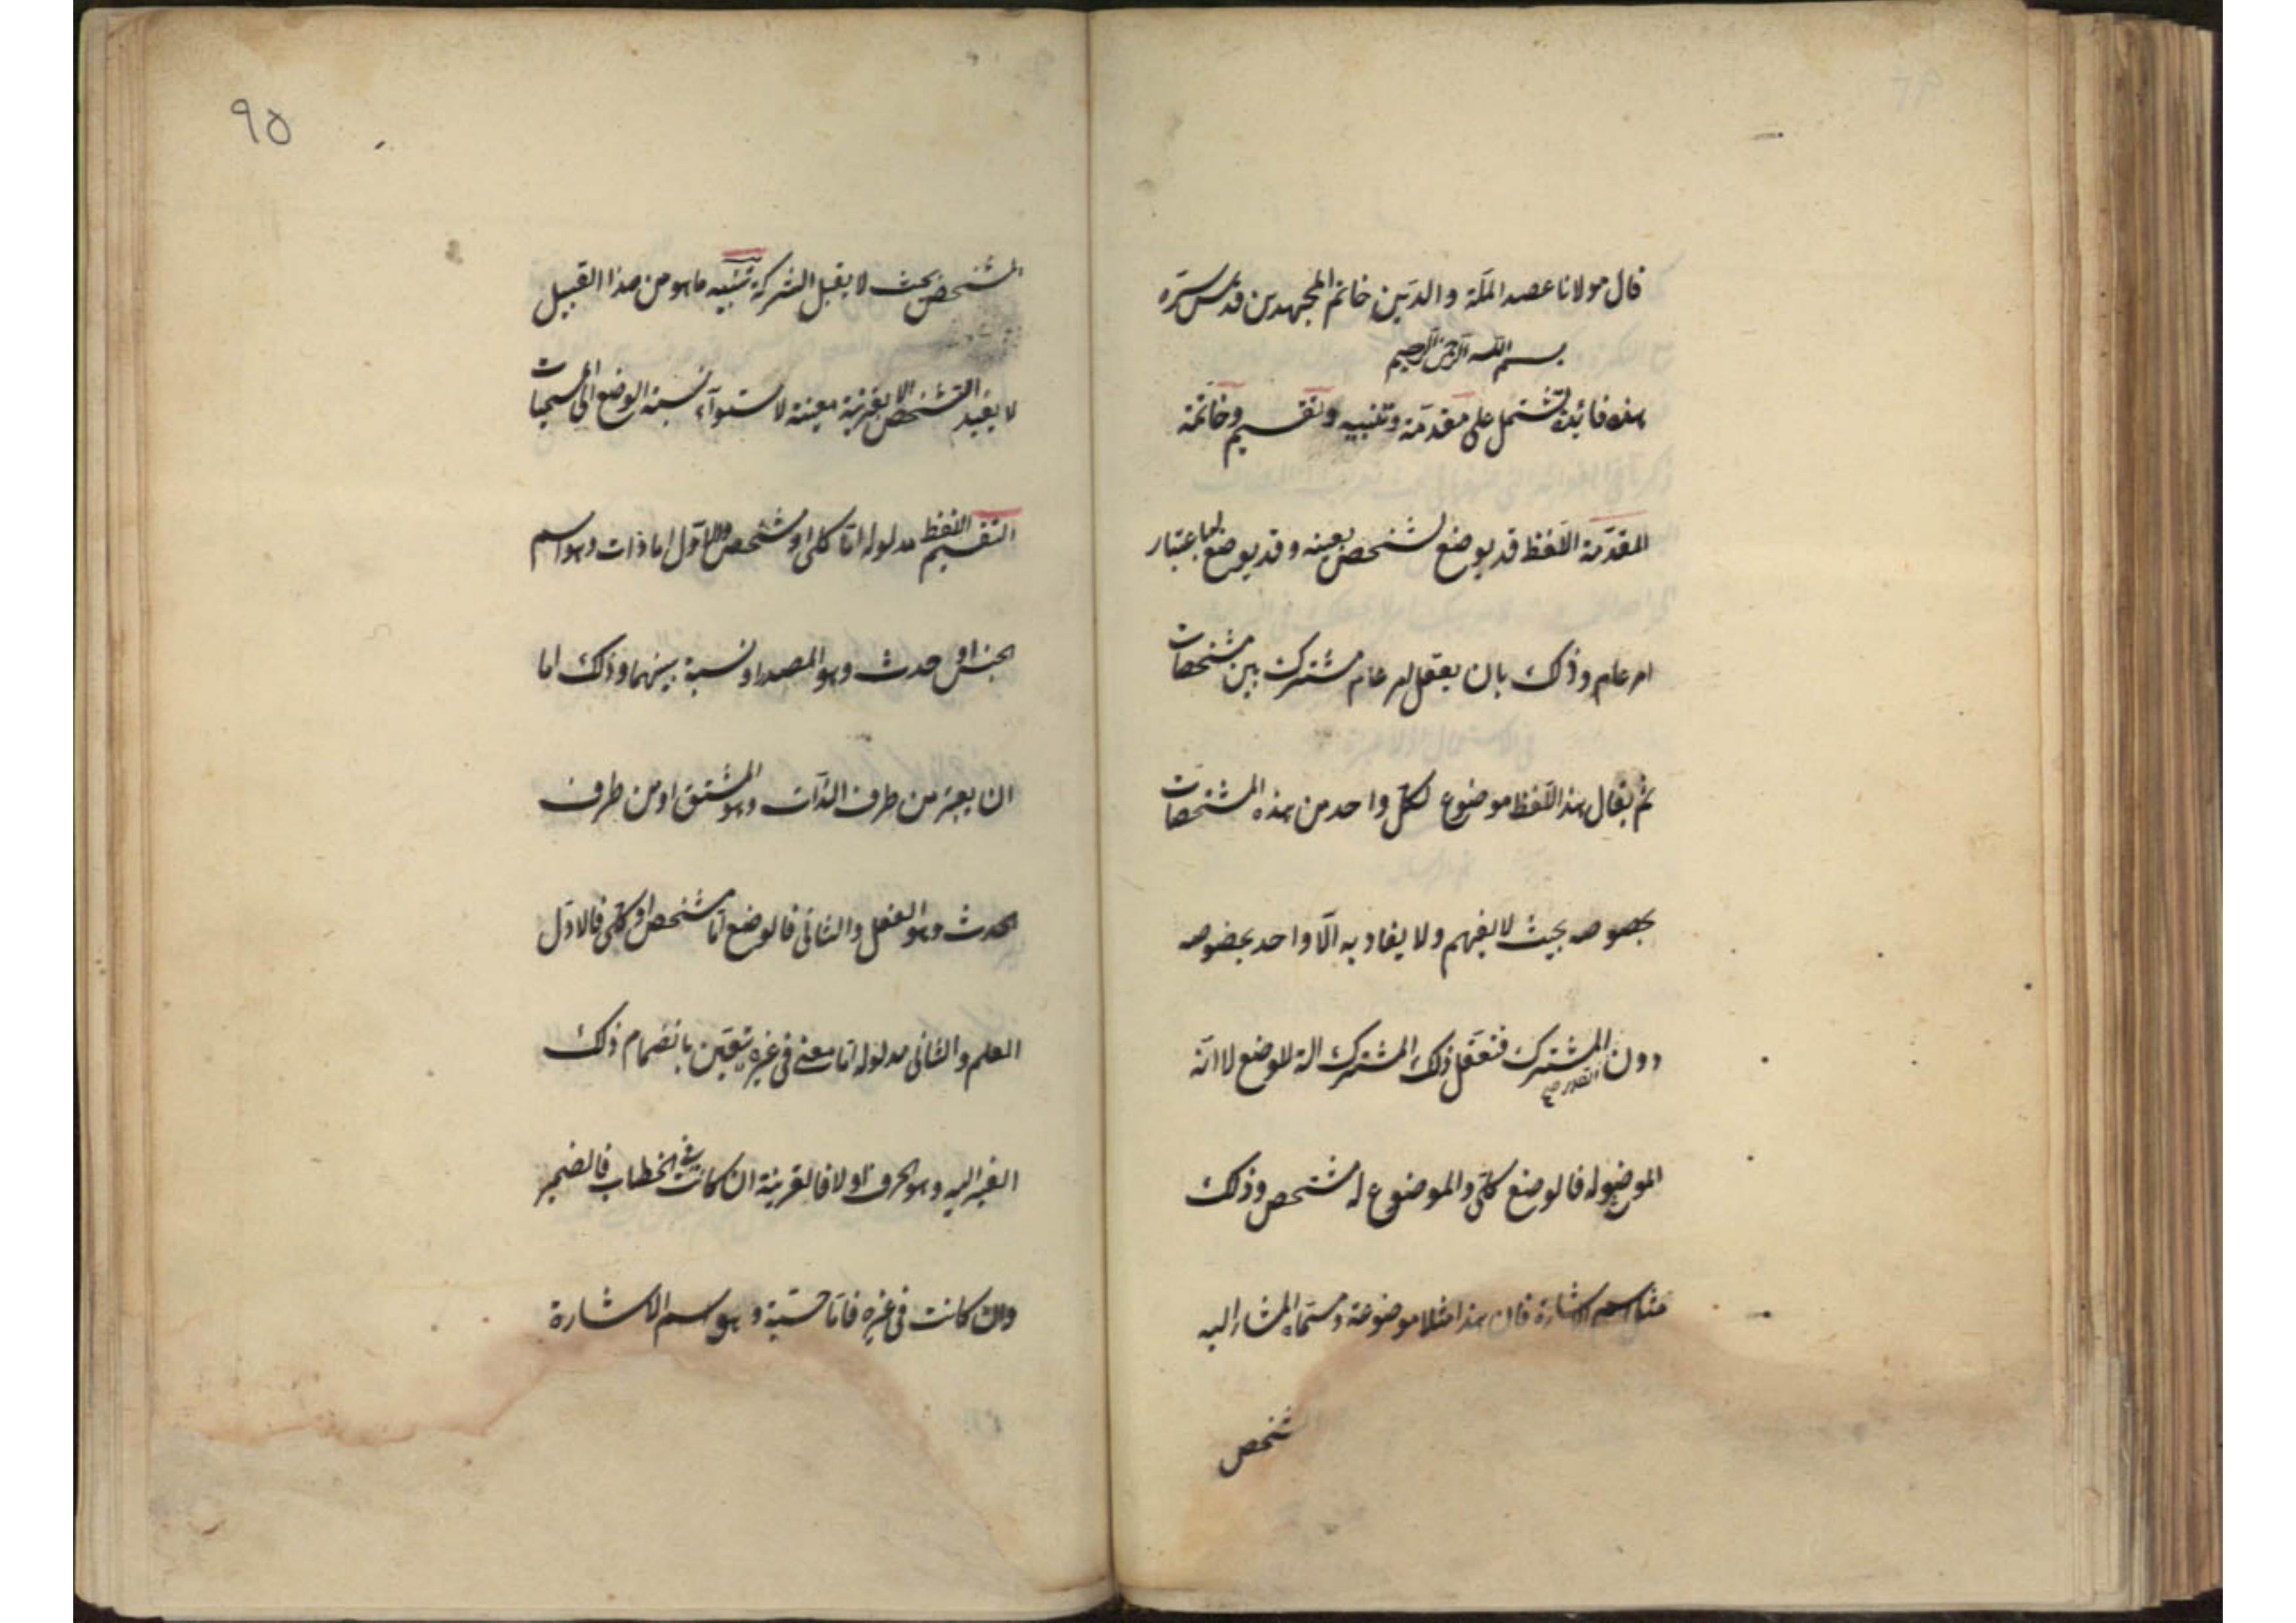 قال مولانا عضد الملّة والدّين خاتم المجتهدين قدّس سرّه
بسم الله الرحمن الرحيم
هذه فائدة تشتمل على مقدّمة وتنبيه وتقسيم وخاتمة
المقدّمة اللّفظ قد يوضع لشخص بعينه وقد يوضع لها باعتبار
امر عام وذلك بان يعقل امر عام مشترك بين مشخصات
ثم يقال هذا اللّفظ موضوع لكلّ واحد من هذه المشخصات
بخصوصه بحيث لا يفهم ولا يفاد به الّا واحد بخصوصه
دون القدر المشترك فتعقّل ذلك المشترك الة للوضع لا انّه
الموضوع له فالوضع كلّى والموضوع له مشخص وذلك
مثل اسم الاشارة فان هذا مثلا موضوعة ومسمّاه المشار اليه
شخص
٩٥
المشخص بحيث لا يقبل الشركة تنبيه ما هو من هذا القبيل
لا يفيد التشخص الا بقرينة معينة لاستوآء نسبة الوضع الى المسميات
التقسيم اللفظ مدلوله امّا كلى او مشخص والاوّل اما ذات وهو اسم
الجنس او حدث وهو المصدر او نسبة بينهما وذلك اما
ان يعتبر من طرف الذّات وهو المشتق او من طرف
الحدث وهو الفعل والثانى فالوضع امّا مشخص او كلّى فالاوّل
العلم والثانى مدلوله امّا معنى فى غيره يتعيّن بانضمام ذلك
الغير اليه وهو الحرف او لا فالقرينة ان كانت فى الخطاب فالضمير
وان كانت فى غيره فامّا حسّية وهو اسم الاشارة